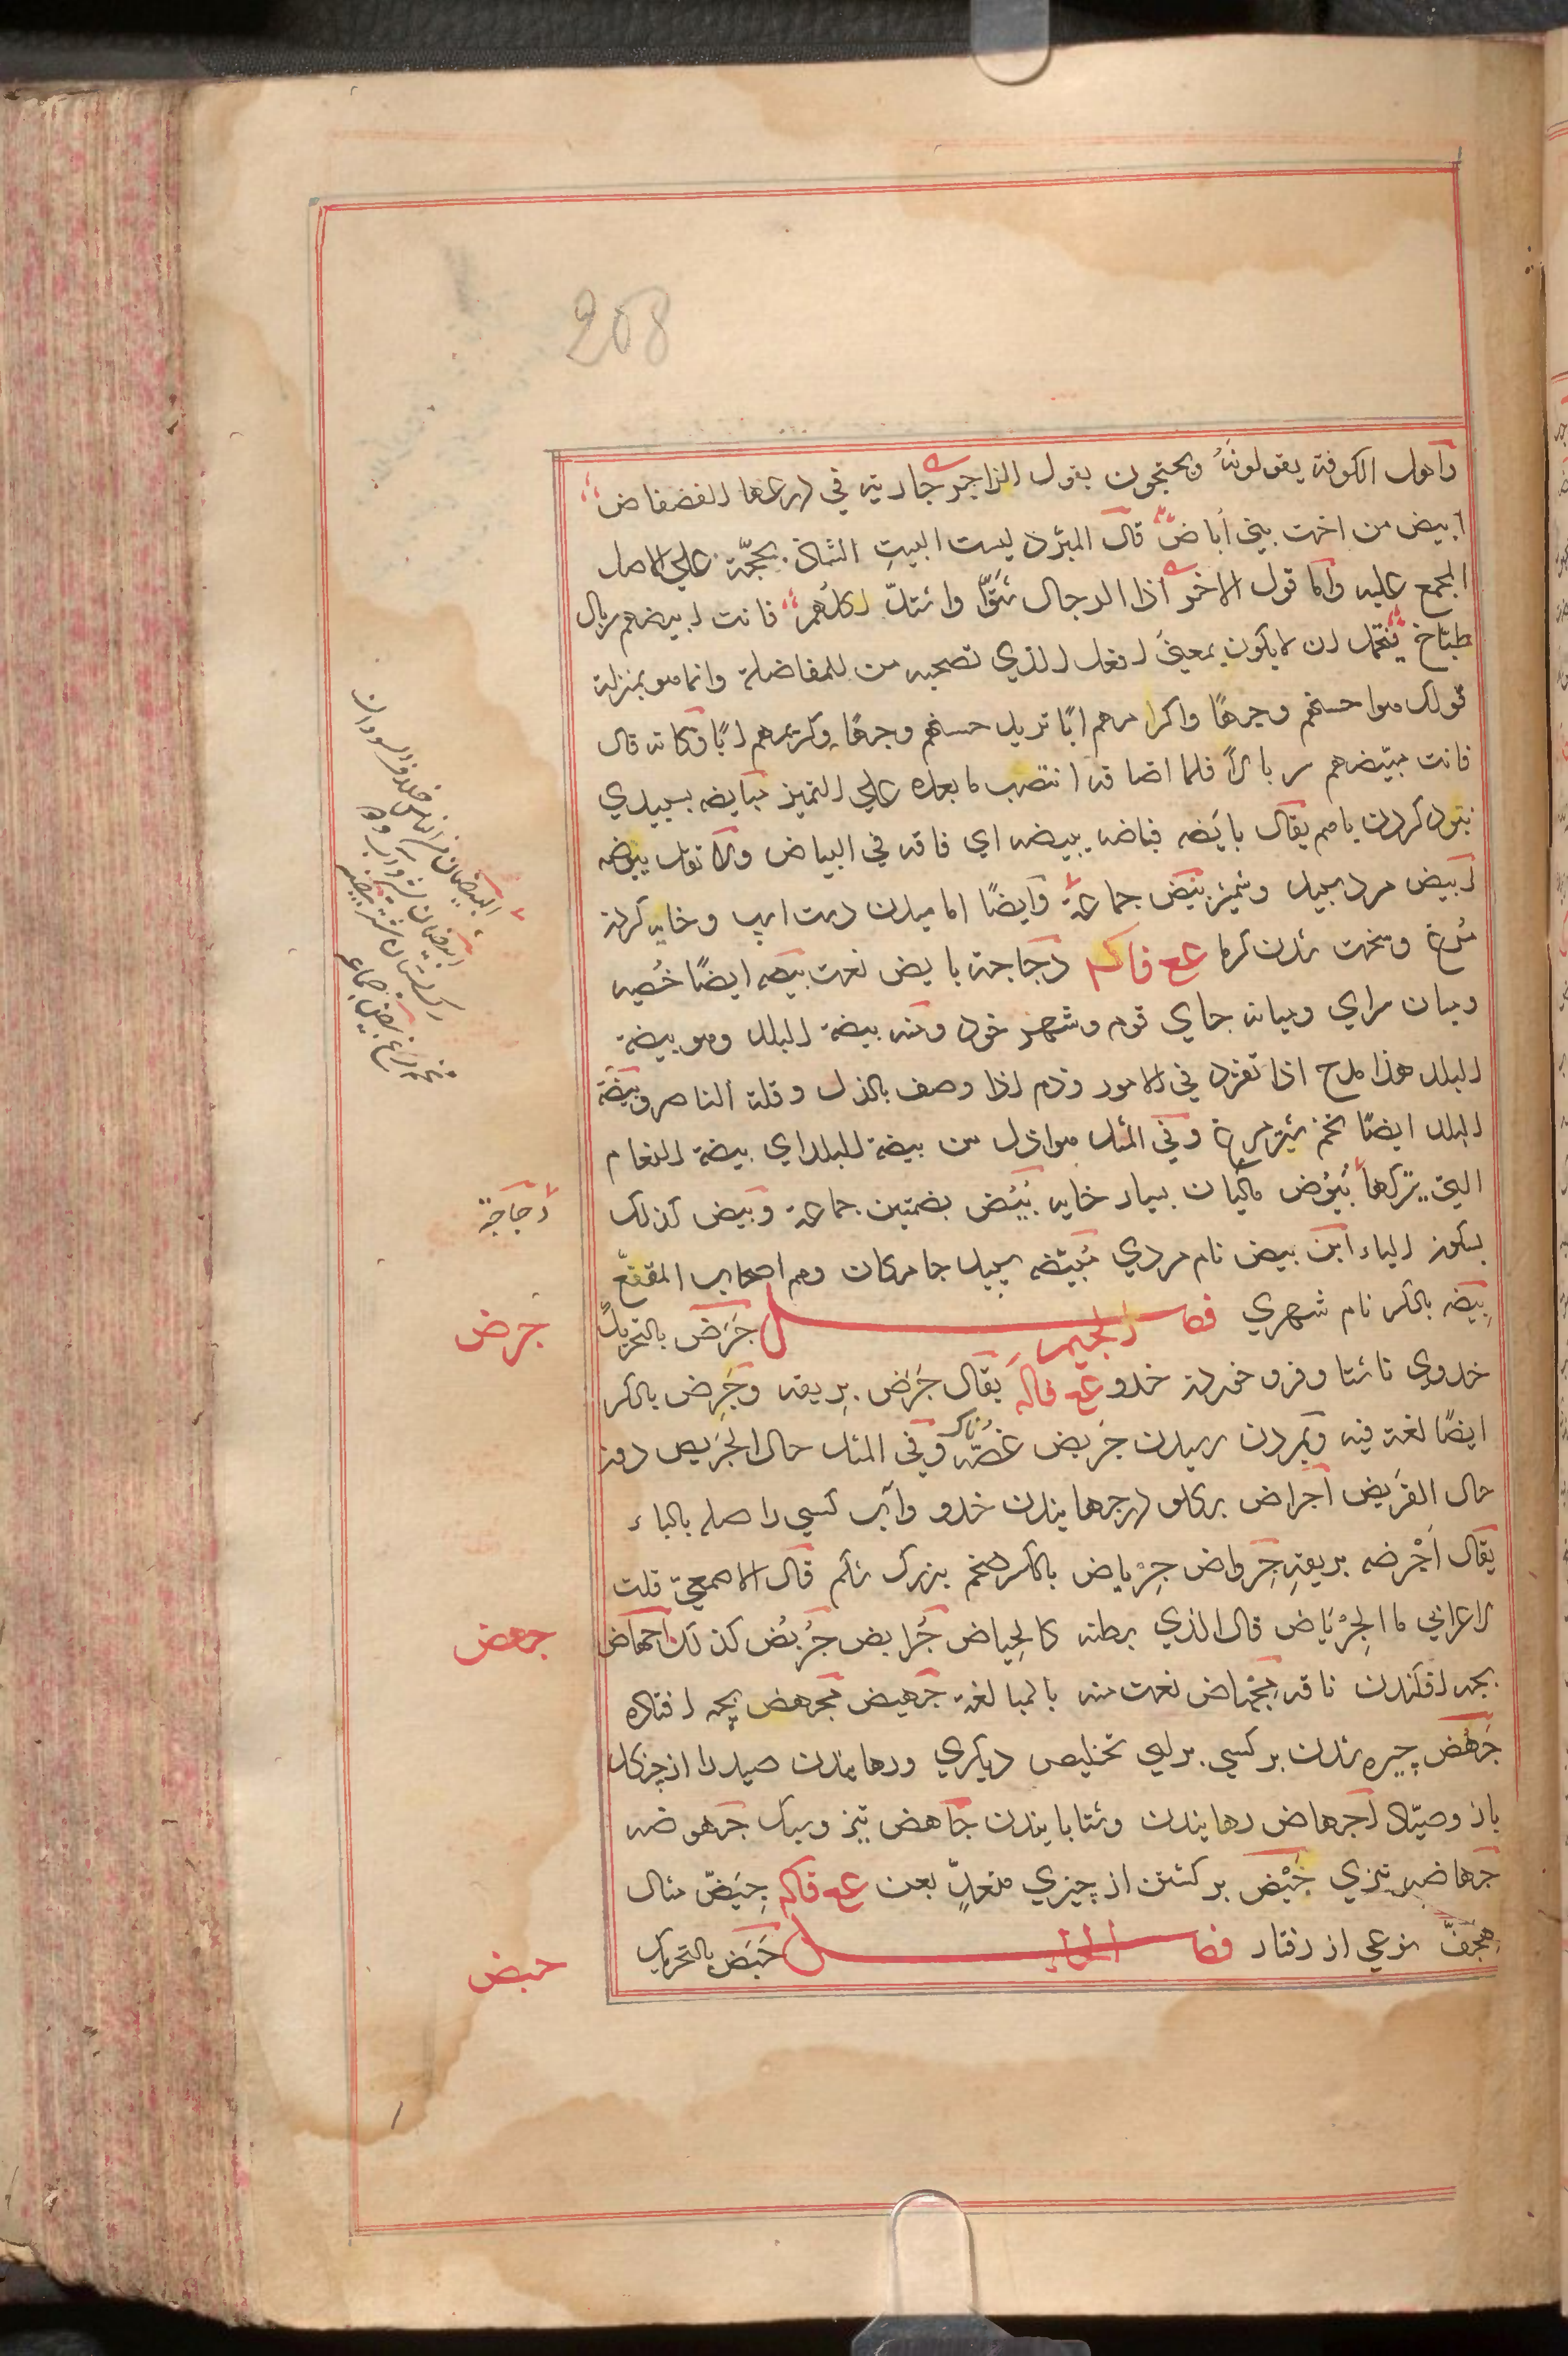 208
واهل الكوفة يقولونه ويحتجون بقول الراجز جارية في درعها الفضفاض
ابيض من اخت بني أباض قال المبرّد ليست البيت الشاذ بحجّة علي الاصل
المجمع عليه واما قول الاخر اذا الرجال شتوا واشتدّ اكلهم فانت ابيضهم سربال
طباخ فيحتمل ان لا يكون بمعنى افعل الذي تصحبه من للمفاضلة وانما هو بمنزلة
قولك هوا حسنهم وجهًا واكرامهم ابًا تريد حسنهم وجهًا وكريمهم ابًا وكانه قال
فانت مبيّضهم سربالاً فلما اضافه انتصب ما بعده علي التميز مبايضه بسپيدي
نبرد كردن باهم يقال بايَضه فباضه يبيضه اي فاقه في البياض ولا تقل يبوضه
ابيض مرد سپيد وشمشير بيض جماعة وايضًا اماسيدن دست اسپ وخايه كردن
مرغ وسخت شدن كرما عع فاكه دجاجة بايض نعت بيضه ايضًا خُصيه
وميان سراي وميانه جاي قوم وشهر خود ومنه بيضة البلد وهو بيضة
البلد هذا مدح اذا تفرد في الامور وذم اذا وصف بالذل وقلة الناصر وبيضة
البلد ايضًا تخم شترمرغ وفي المثل هوا ذل من بيضة البلد اي بيضة النعام
التي يتركها بُيُوض ماكيان بسيار خايه بُيُض بضمتين جماعة وبيض كذلك
بسكون الياء ابن بيض نام مردي مُبيّضه سپيد جامكان وهم اصحاب المقنع
بِيضه بالكسر نام شهري فصل الجيم جَرَض بالتحريك
خدوي ناشتا وفرو خوردن خدو عع فاكه يقال جَرَض بريقه وجَرِض بالكسر
ايضًا لغة فيه وبمردن رسيدن جَريض غصّه ناك وفي المثل حال الجَريض دون
حال القَريض اجراض بركلو درجهانيدن خدو واب كسي را صله بالباء
يقال اَجْرَضه بريقهِ جِرواض جِرْياض بالكسر ضخم بزرك شكم قال الاصمعي قلت
لاعرابي ما الجِرْيَاض قال الذي بطنه كالحِياض جُرابض جُرُبُض كذلك اجهاض
بچه افكندن ناقه مِجْهاض نعت منه بالمبالغة جَهيض مجهض بچه افتاده
جَهْض چيره شدن بر كسي براي تخليص ديكري ورهانيدن صيد را از چنكال
باز وصيّاد اجهاض رهانيدن وشتابانيدن جاهض تيز وسبك جهوضه
جهاضه تيزي جَيْض بر كشتن از چيزي متعدٍّ بعن عع فاكه جِيَضّ مثال
هِجَفّ نوعي از رفتار فصل الحاء حَبَض بالتحريك
دجاجة
جرض
جهض
حبض